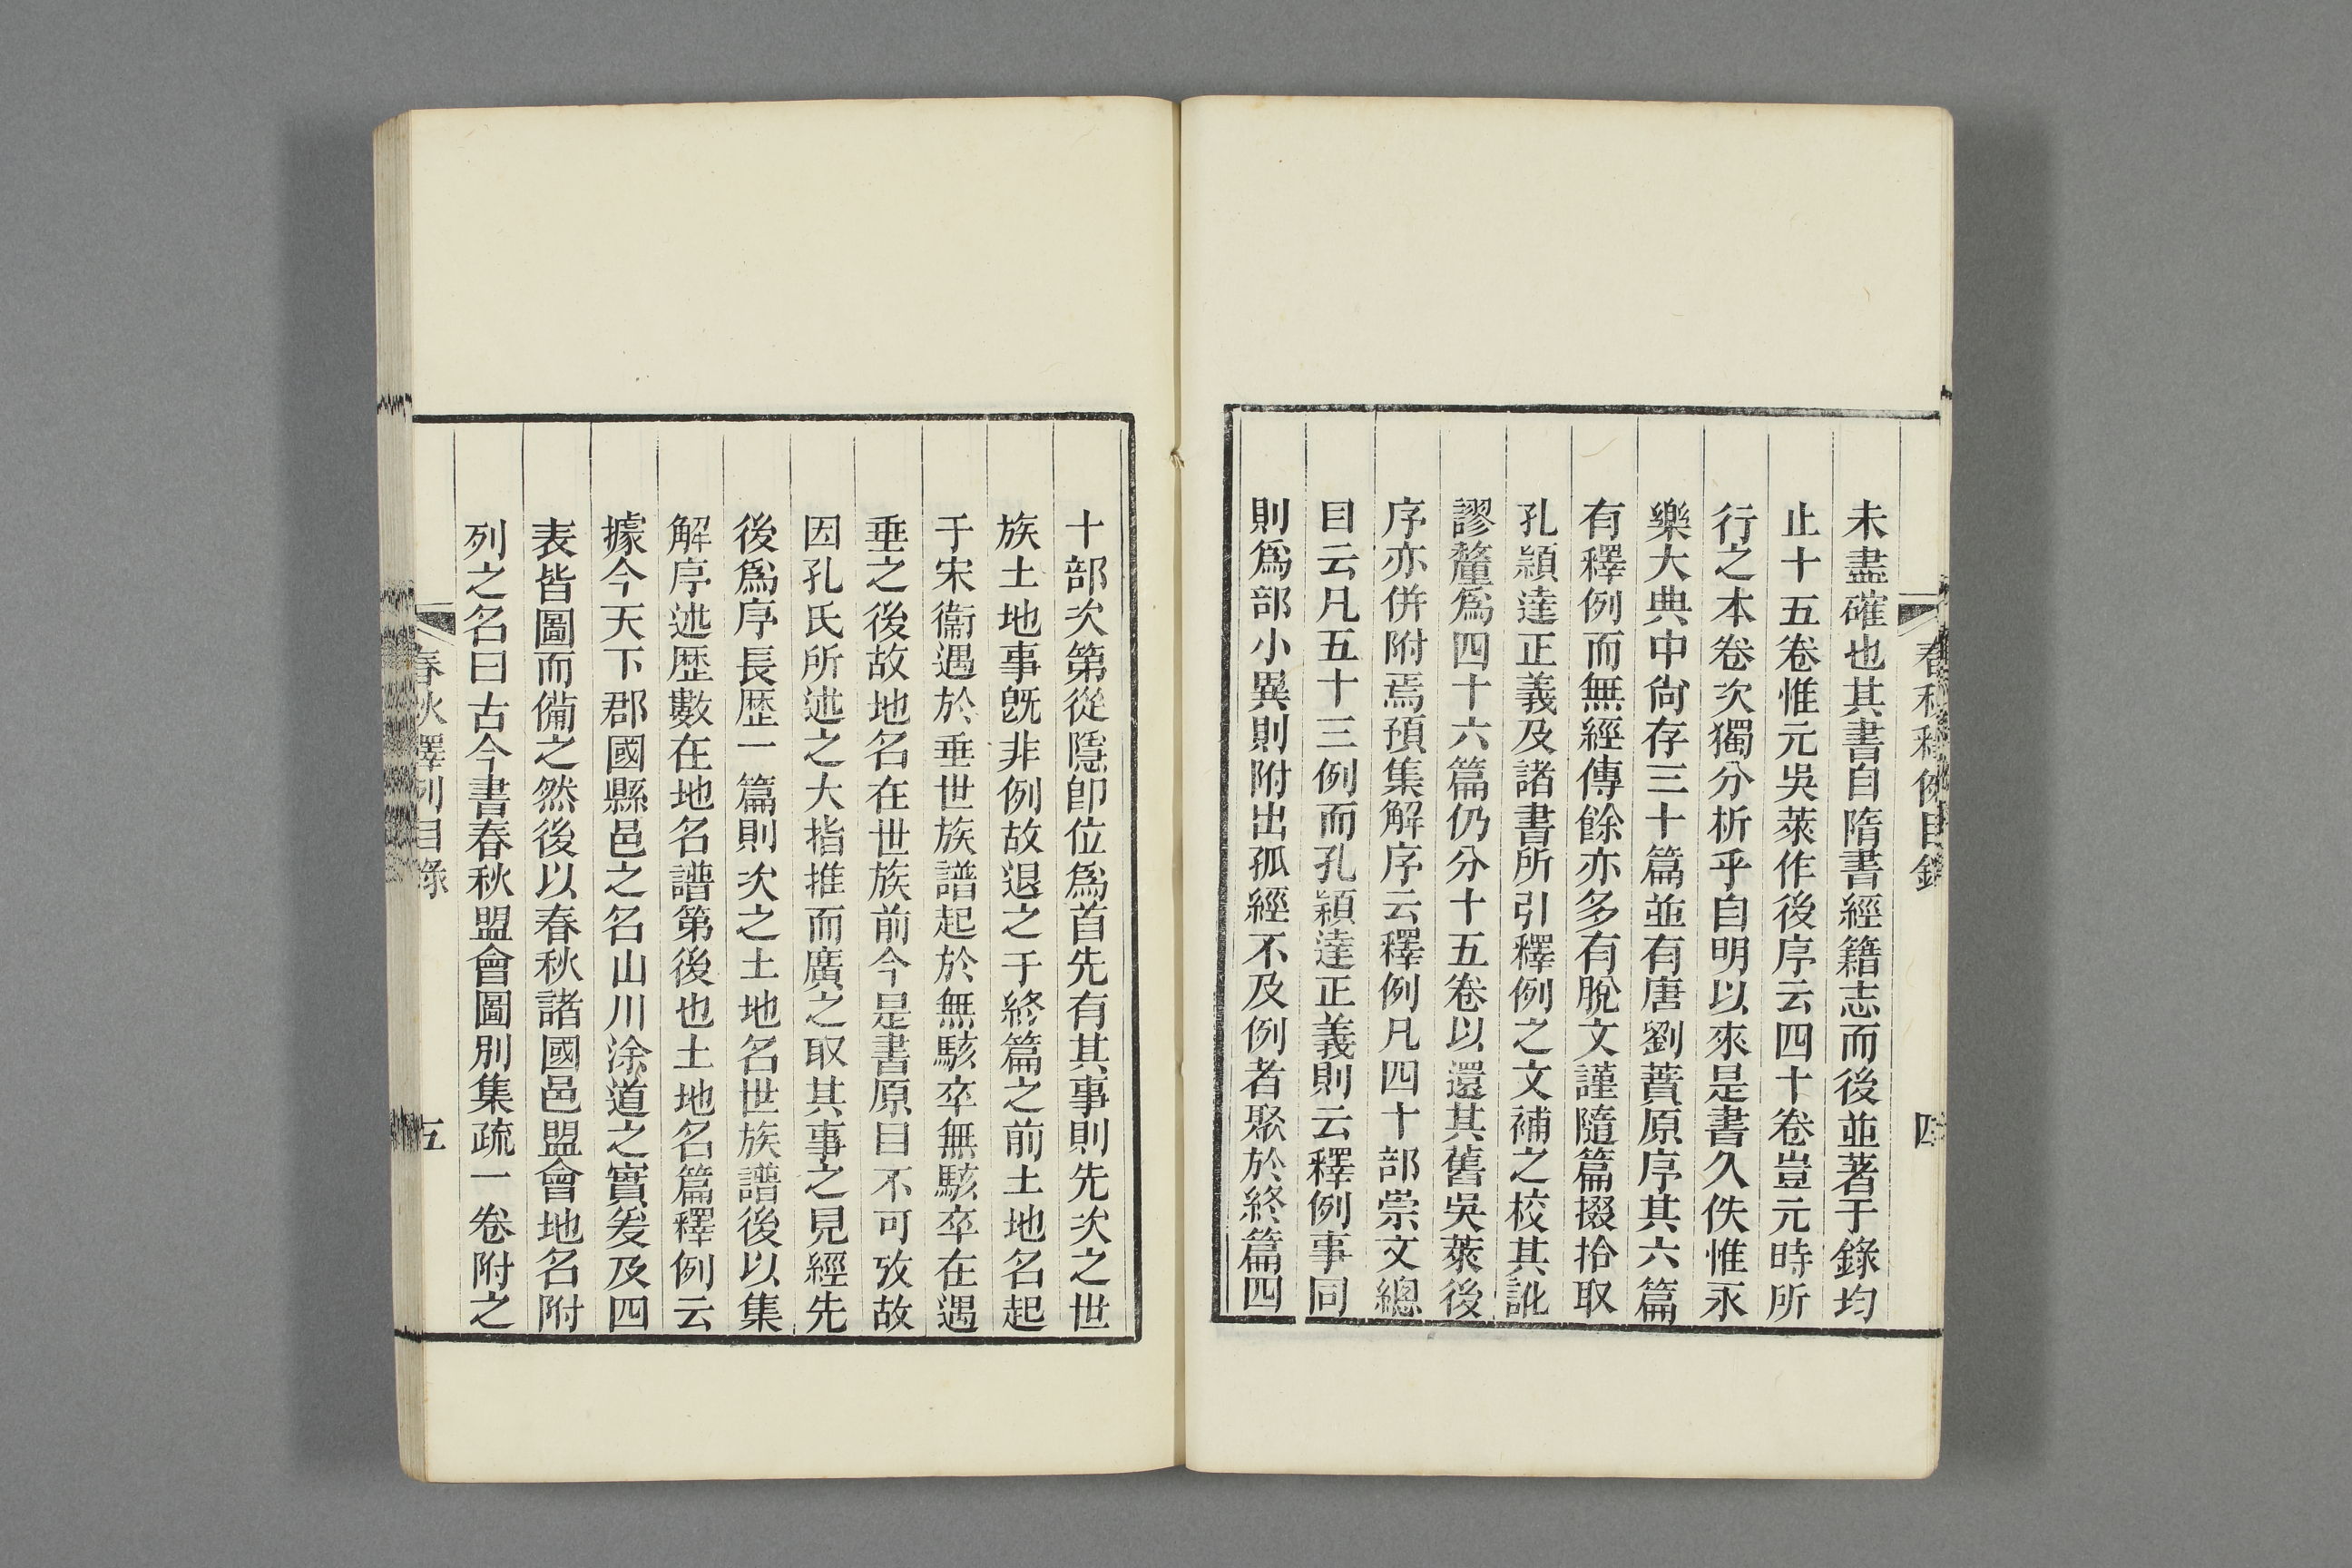 春秋釋例目錄
四
未盡確也其書自隋書經籍志而後並著于錄均
止十五卷惟元吳萊作後序云四十卷豈元時所
行之本卷次獨分析乎自明以來是書久佚惟永
樂大典中尙存三十篇並有唐劉蕡原序其六篇
有釋例而無經傳餘亦多有脫文謹隨篇掇拾取
孔穎達正義及諸書所引釋例之文補之校其訛
謬釐爲四十六篇仍分十五卷以還其舊吳萊後
序亦併附焉預集解序云釋例凡四十部崇文總
目云凡五十三例而孔穎達正義則云釋例事同
則爲部小異則附出孤經不及例者聚於終篇四
十部次第從隱卽位爲首先有其事則先次之世
族土地事旣非例故退之于終篇之前土地名起
于宋衞遇於垂世族譜起於無駭卒無駭卒在遇
垂之後故地名在世族前今是書原目不可攷故
因孔氏所述之大指推而廣之取其事之見經先
後爲序長歷一篇則次之土地名世族譜後以集
解序述歷數在地名譜第後也土地名篇釋例云
據今天下郡國縣邑之名山川涂道之實爰及四
表皆圖而備之然後以春秋諸國邑盟會地名附
列之名曰古今書春秋盟會圖別集疏一卷附之
春秋釋例目錄
五